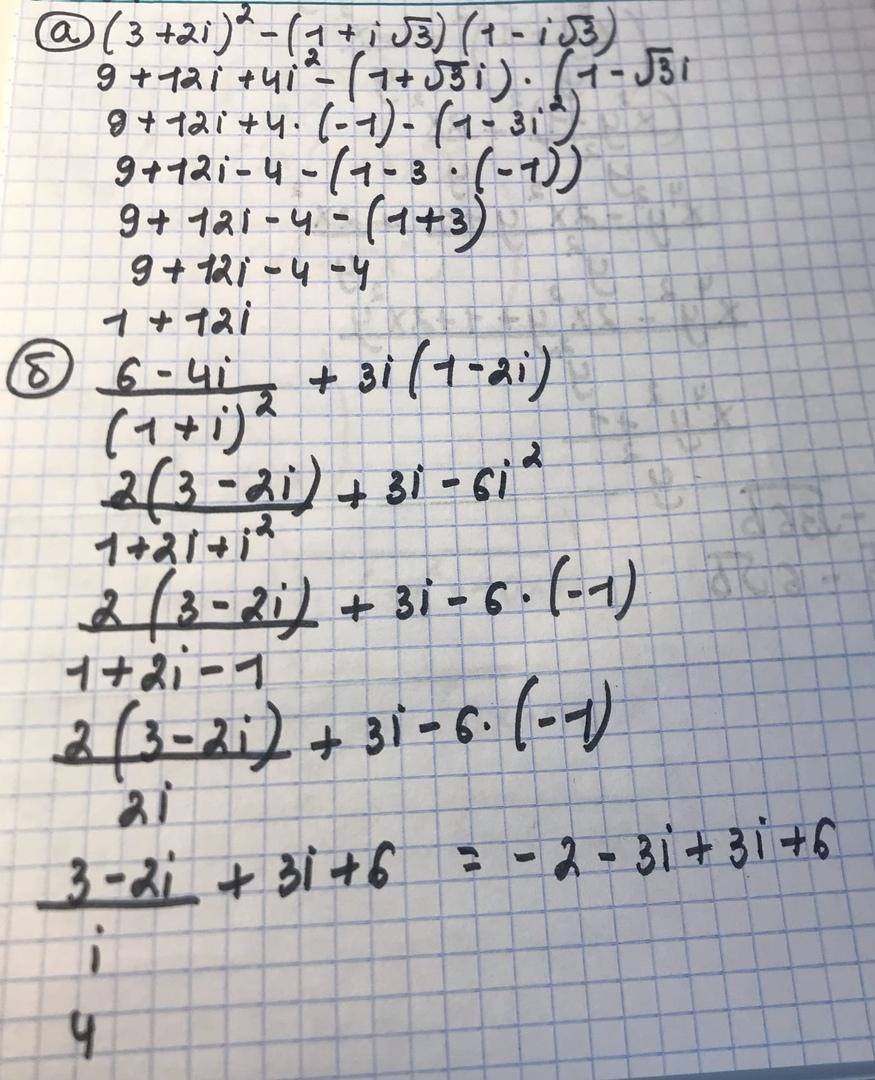 а) (3+2i)² - (1+i√3)(1-i√3)
9+12i+4i² - (1+√3i)·(1-√3i
9+12i+4·(-1)-(1-3i²)
9+12i-4-(1-3·(-1))
9+12i-4-(1+3)
9+12i-4-4
1+12i
б) (6-4i)/(1+i)² + 3i(1-2i)
2(3-2i)/(1+2i+i²) + 3i-6i²
2(3-2i)/(1+2i-1) + 3i-6·(-1)
2(3-2i)/2i + 3i-6·(-1)
(3-2i)/i + 3i+6 = -2-3i+3i+6
4